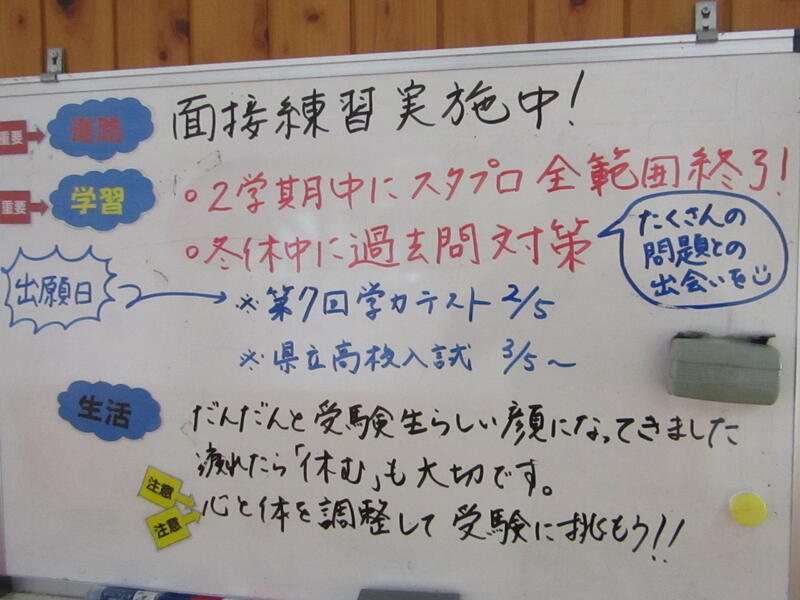 重要
進路
面接練習実施中!
重要
学習
○2学期中にスタプロ全範囲終了!
○冬休中に過去問対策
たくさんの
問題との
出会いを
出願日
※第7回学力テスト 2/5
※県立高校入試 3/5~
生活
だんだんと受験生らしい顔になってきました
疲れたら「休む」も大切です。
注意
注意
心と体を調整して受験に挑もう!!